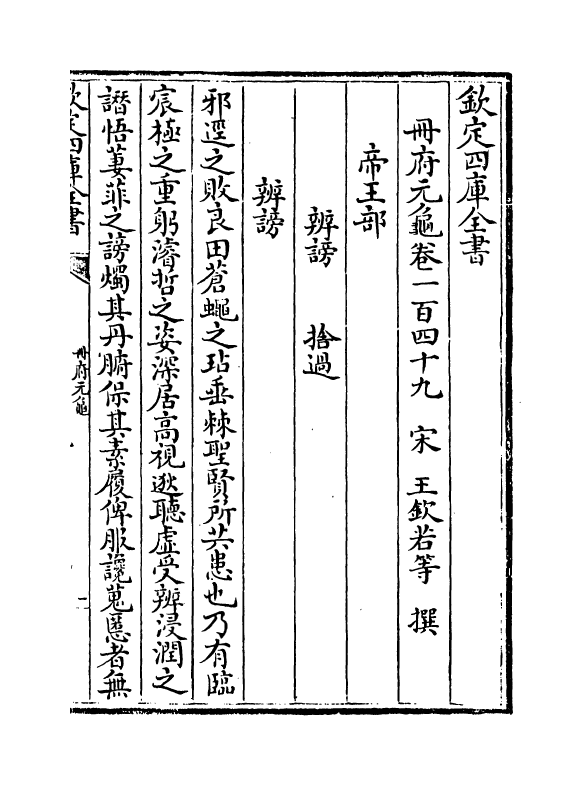 欽定四庫全書
冊府元龜卷一百四十九 宋 王欽若等 撰
帝王部
辨謗 捨過
辨謗
邪逕之敗良田蒼蠅之玷垂棘聖賢所共患也乃有臨
宸極之重躬濬哲之姿深居高視逖聽虛受辨浸潤之
譖悟萋菲之謗燭其丹腑保其素履俾服讒蒐慝者無
欽定四庫全書
冊府元龜